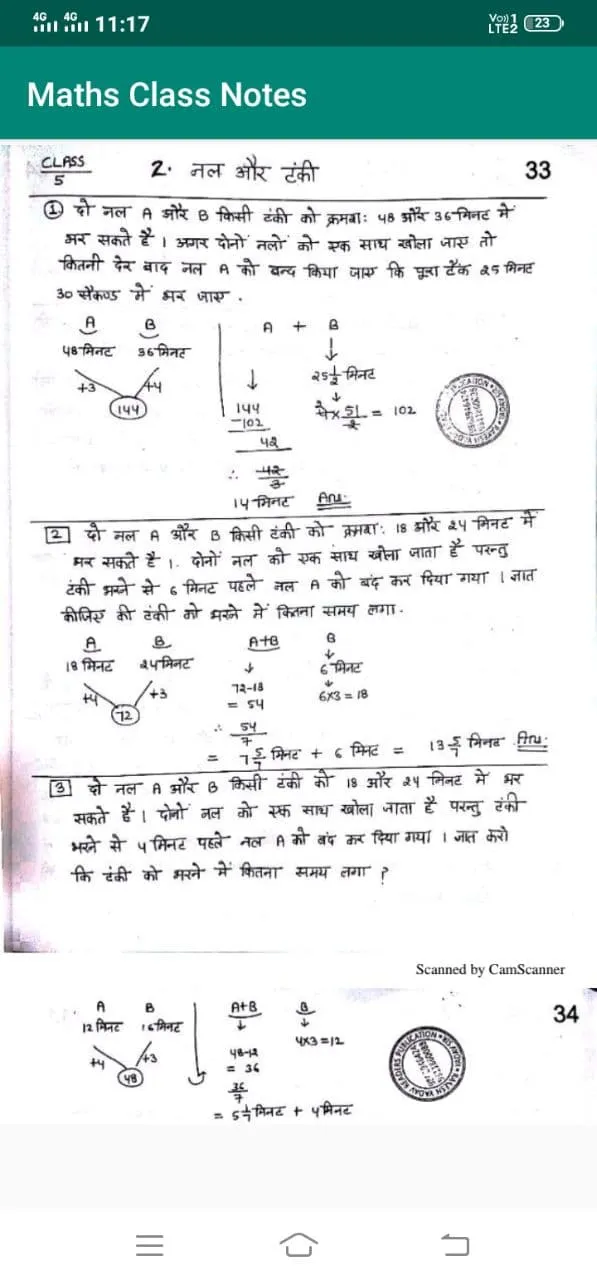 4G 4G 11:17 Vo)) 1 LTE2 23
Maths Class Notes
CLASS 5 2. नल और टंकी 33
① दो नल A और B किसी टंकी को क्रमशः 48 और 36 मिनट में
भर सकते है । अगर दोनों नलों को एक साथ खोला जाए तो
कितनी देर बाद नल A को बन्द किया जाए कि पूरा टैंक 25 मिनट
30 सैकण्ड में भर जाए .
A B A + B
48 मिनट 36 मिनट ↓ ↓
25½ मिनट
+3 +4 ↓
144 144 4 × 51/2 = 102
-102
42
∴ 42/3
14 मिनट Ans.
2 दो नल A और B किसी टंकी को क्रमशः 18 और 24 मिनट में
भर सकते है । दोनों नल को एक साथ खोला जाता है परन्तु
टंकी भरने से 6 मिनट पहले नल A को बंद कर दिया गया । ज्ञात
कीजिए की टंकी को भरने में कितना समय लगा .
A B A+B B
18 मिनट 24 मिनट ↓ ↓
6 मिनट
+4 +3 72-18 ↓
72 = 54 6×3 = 18
∴ 54/7
= 7 5/7 मिनट + 6 मिनट = 13 5/7 मिनट Ans.
3 दो नल A और B किसी टंकी को 18 और 24 मिनट में भर
सकते है । दोनों नल को एक साथ खोला जाता है परन्तु टंकी
भरने से 4 मिनट पहले नल A को बंद कर दिया गया । ज्ञात करो
कि टंकी को भरने में कितना समय लगा ?
Scanned by CamScanner
A B A+B B 34
12 मिनट 16 मिनट ↓ ↓
4×3=12
+4 +3 48-12
48 = 36
36/7
= 5 1/7 मिनट + 4 मिनट